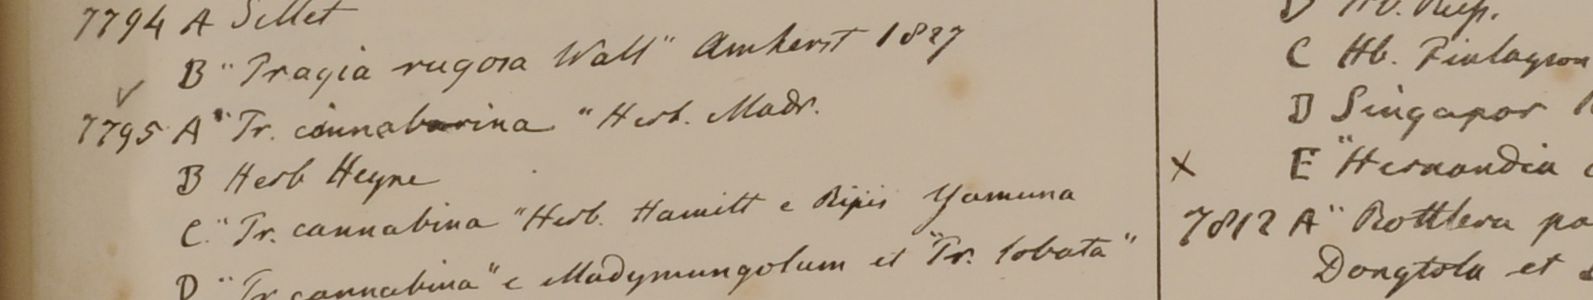 7794 A Sillet
B "Tragia rugosa Wall" Amherst 1827
7795 A "Tr. cinnabarina" Herb. Madr.
B Herb Heyne
C. "Tr. cannabina" Herb. Hamilt e Ripis Yamuna
D "Tr. cannabina" e Madymungolum et "Tr. lobata"
C Hb. Finlayson
D Singapor
X E "Hernandia
7812 A "Rottlera pa
Dongtola et